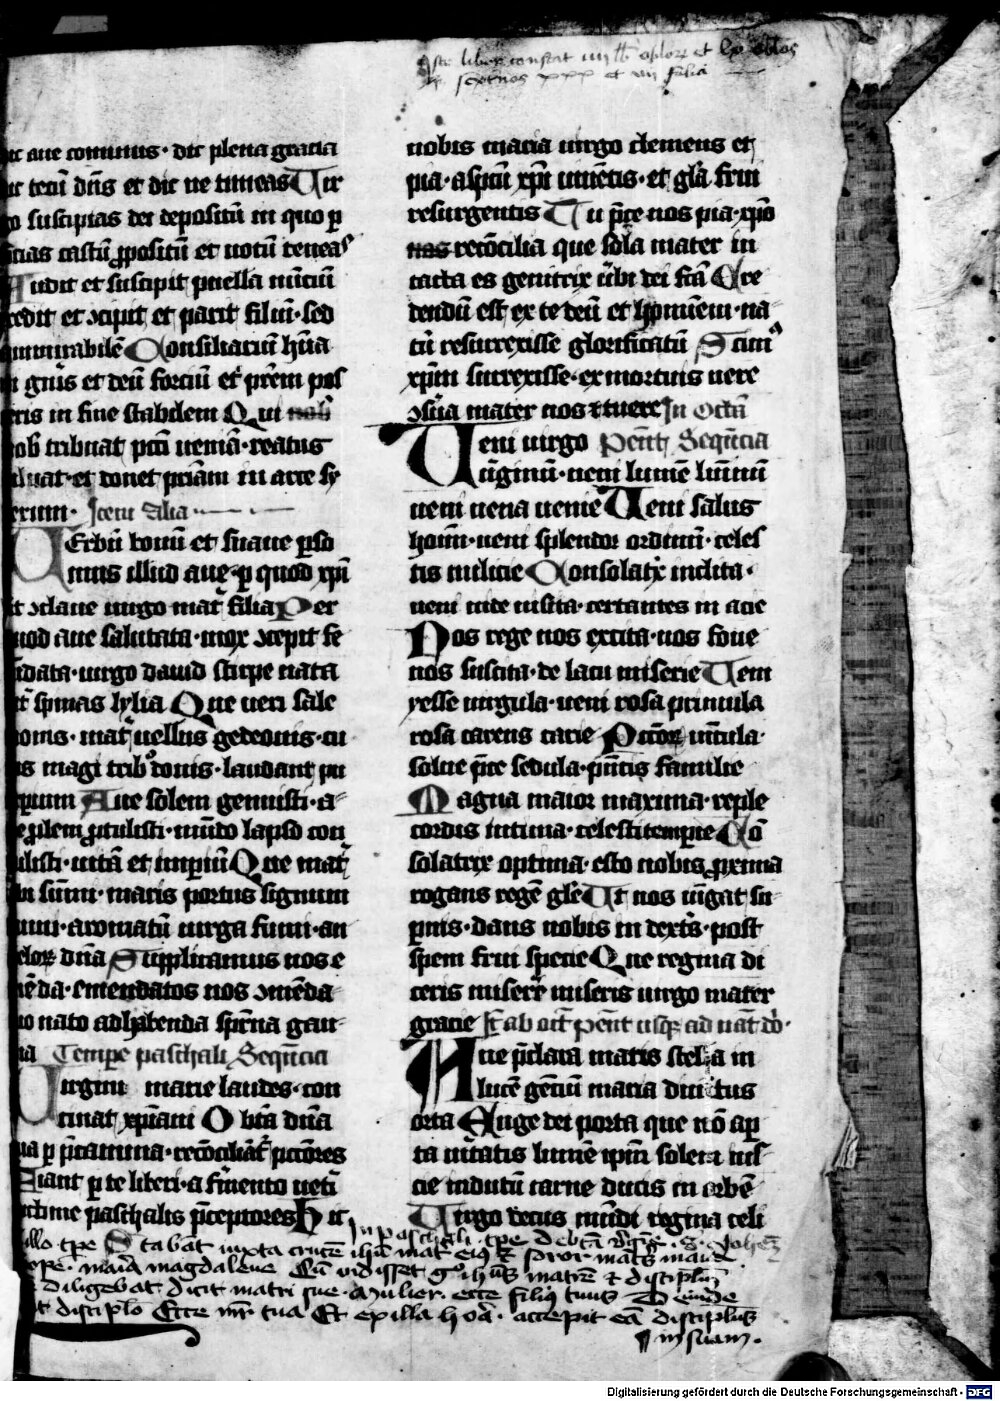 Iste liber constat iiii lb et lx
sexternos xxx et vii folia
aue cominus · dic plena gracia
tecū dn̄s et dic ne timeas Vir
go suscipias dei depositū in quo ꝑ
ficias castū ꝓpositū et uotū teneas
Audit et suscipit puella nūciū
credit et ↄcipit et parit filiū · sed
ammirabilē Consiliariū hūa
ni gn̄is et deū forciū et pr̄em pos
teris in fine stabilem Qui
nob̄ tribuat pctī ueniā · reatus
et donet pr̄iam in arce sy
derum · Item Alia
Verbū bonū et suaue ꝑso
nmus illud aue · ꝑ quod xp̄i
fit ↄclaue uirgo mat̄ filia Per
quod aue salutata · mox ↄcepit fe
cūdata · uirgo dauid stirpe nata
int̄ spinas lylia Que ueri sale
monis · mat̄ uellus gedeonis · cu
ius magi trib⁹ donis · laudant pu
erpium Aue solem genuisti · a-
ue ꝓlem ꝓtulisti · mūdo lapso con
tulisti · uitā et imꝑiū Que mat̄
ūbi sūmi · maris portus signum
fumi · aromatū uirga fumi · an
gelorꝝ dn̄a Supplicamus nos e
mēda · emendatos nos ↄmēda
tuo nato adhabenda spr̄na gau-
dia Tempe paschali Seq̄ncia
Virgini marie laudes · con
cinat xp̄iani O bt̄a dn̄a
Eua ꝑ p̄camina · recōciliāt p̄ctōres
Siant ꝑ te liberi · a f̄mento uet̄i
uictime paschalis p̄ceptores Hic
nobis maria uirgo clemens et
pia · a sp̄iritū xp̄i uiuētis · et glā frui
resurgentis Tu p̄ce nos pia · xp̄o
nos recōcilia que sola mater in
tacta es genitrix ūbi dei fc̄a Cre
dendū est ex te deū et hominem · na-
tū resurrexisse glorificatū Scim⁹
xp̄m surrexisse · ex mortuis uere
ↄsūa mater nos tuere In Octā
Veni uirgo Pent̄ Seq̄ncia
uirginū · ueni lumē luminū
ueni uena uenie Veni salus
homī · ueni splendor ordinū · celes
tis milicie Consolatrix inclita ·
ueni uide uisita · certantes in acie
Nos rege nos excita · nos foue
nos suscita · de lacu miserie Veni
yesse uirgula · ueni rosa primula
rosa carens carie Pctōrꝝ uincula ·
solue p̄ce sedula · pn̄cis familie
Magna maior maxima · reple
cordis intima · celesti tempie Cō
solatrix optima · esto nobis ꝓxima
rogans regē glē Vt nos iūgat su
pnis · dans nobis in dext̄s · post
spem frui specie Que regina di
ceris miserēre miseris uirgo mater
gracie It̄ ab oct̄ Pent̄ usqꝫ ad nat̄ dō ·
Aue p̄clara maris stella in
lucē gēciū maria diuītus
orta Euge dei porta que nō ap
ta ūitatis lumē ipm̄ solem ius
cie indutū carne ducis in orbē
Virgo decus mūdi regina celi
In paschali tp̄e de bt̄a ū̄gīe S · Johēs
illo tp̄e Stabāt iuxta crucē ihū mat̄ eiꝰ et soror mat̄s marie
maria magdalene Cū uidisset gͦ ih̄us matrē et discipulū
diligebat dicit matri sue · Mulier · ecce filiꝰ tuus Deinde
discipulo Ecce mr̄ tua Et ex illa hora · accepit eā discipulus
in suam ·
Digitalisierung gefördert durch die Deutsche Forschungsgemeinschaft - DFG